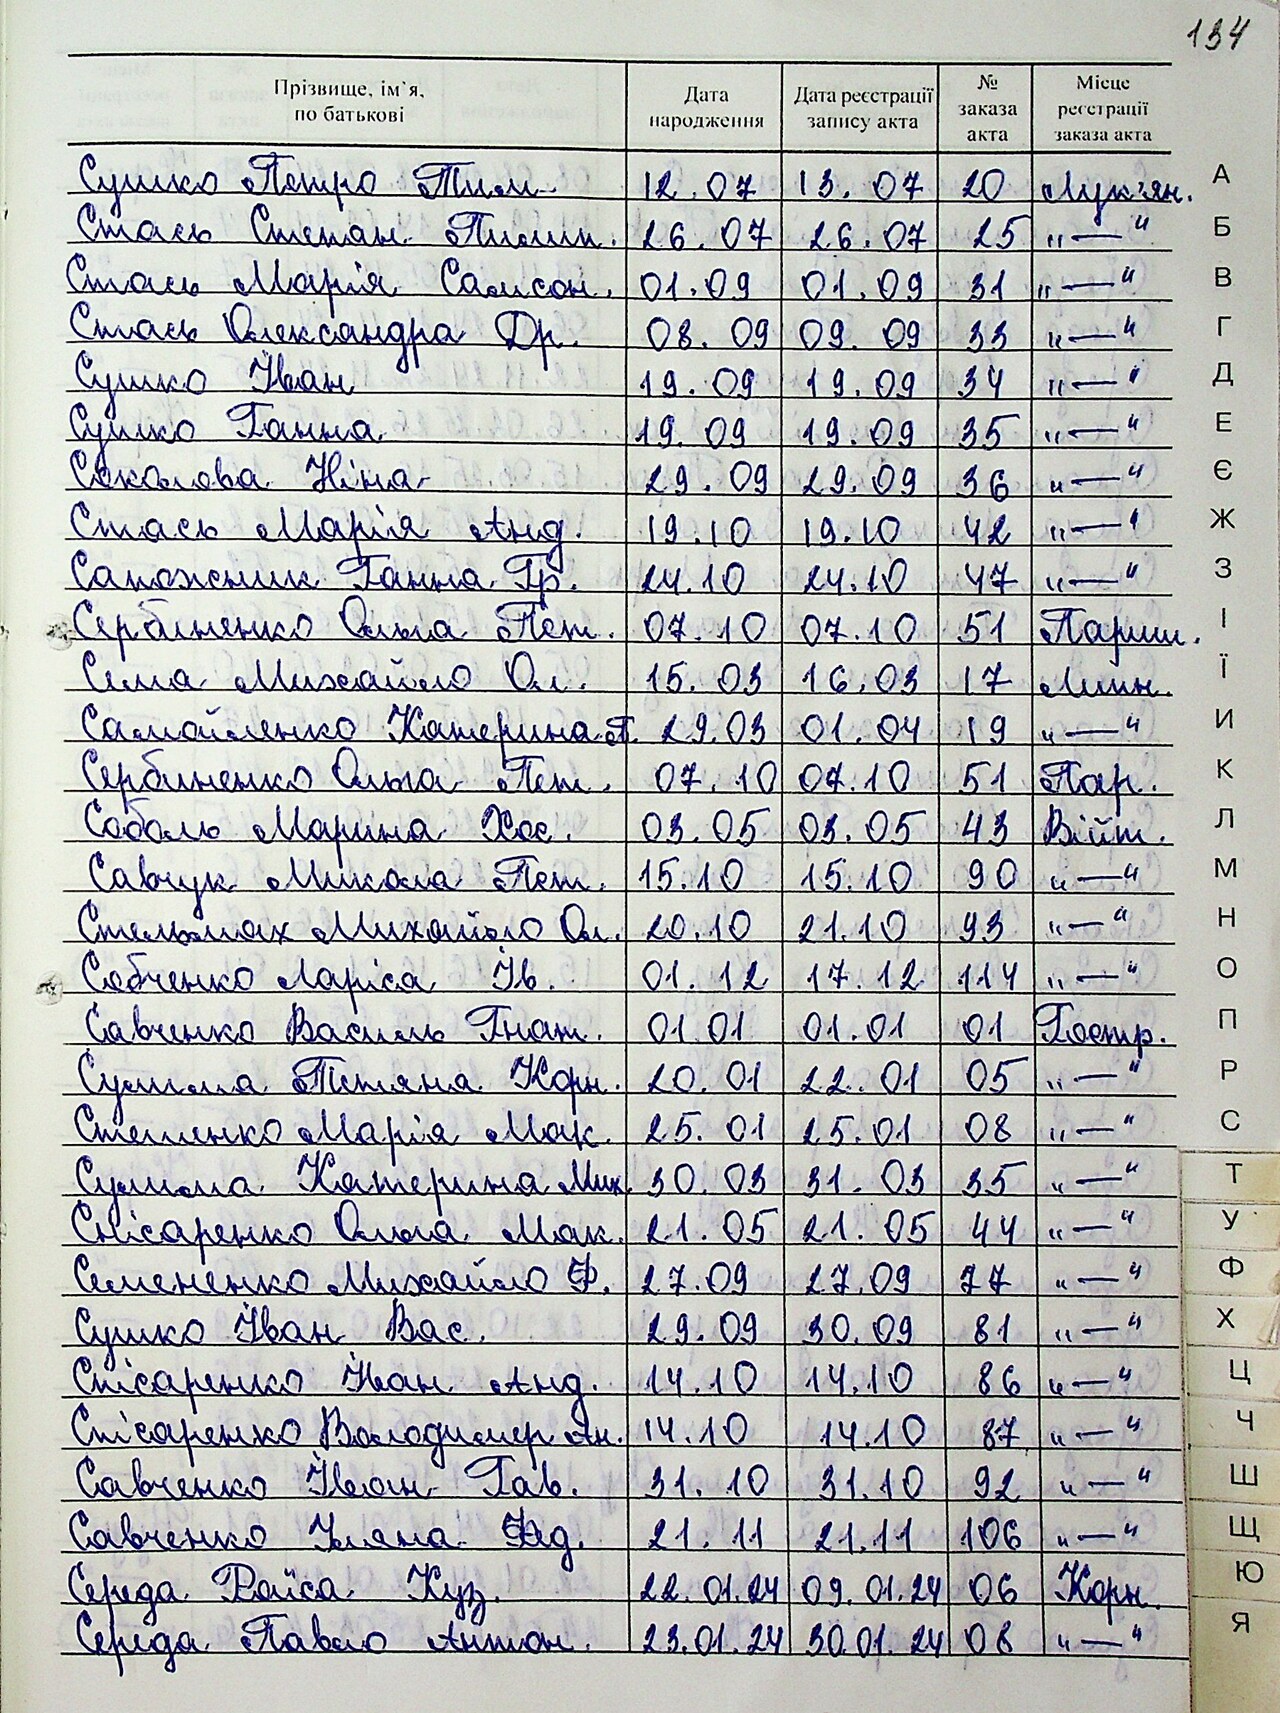 134
Прізвище, ім`я, по батькові Дата народження Дата реєстрації запису акта № заказа акта Місце реєстрації заказа акта
Сушко Петро Тим. 12.07 13.07 20 Лук'ян. А
Стась Степан Пилип. 26.07 26.07 25 „—" Б
Стась Марія Самсон. 01.09 01.09 31 „—" В
Стась Олександра Др. 08.09 09.09 33 „—" Г
Сушко Іван 19.09 19.09 34 „—" Д
Сушко Ганна 19.09 19.09 35 „—" Е
Соколова Ніна 29.09 29.09 36 „—" Є
Стась Марія Анд. 19.10 19.10 42 „—" Ж
Сапожник Ганна Гр. 24.10 24.10 47 „—" З
Сербіненко Ольга Пет. 07.10 07.10 51 Париш. І
Сима Михайло Ол. 15.03 16.03 17 Линн. Ї
Самойленко Катерина П. 29.03 01.04 19 „—" И
Сербиненко Ольга Пет. 07.10 07.10 51 Пар. К
Соболь Марина Хос. 03.05 03.05 43 Війт. Л
Савчук Микола Пет. 15.10 15.10 90 „—" М
Стельмах Михайло Ол. 20.10 21.10 93 „—" Н
Собченко Лариса Ів. 01.12 17.12 114 „—" О
Савченко Василь Гнат. 01.01 01.01 01 Гостр. П
Сулима Тетяна Корн. 20.01 22.01 05 „—" Р
Стеценко Марія Мак. 25.01 25.01 08 „—" С
Сулима Катерина Мих. 30.03 31.03 35 „—" Т
Снісаренко Ольга Мак. 21.05 21.05 44 „—" У
Семененко Михайло Ф. 27.09 27.09 77 „—" Ф
Сушко Іван Вас. 29.09 30.09 81 „—" Х
Снісаренко Іван Анд. 14.10 14.10 86 „—" Ц
Снісаренко Володимер Ан. 14.10 14.10 87 „—" Ч
Савченко Іван Гав. 31.10 31.10 92 „—" Ш
Савченко Уляна Фед. 21.11 21.11 106 „—" Щ
Середа Раїса Куз. 22.01.24 09.01.24 06 Корн. Ю
Середа Павло Антон. 23.01.24 30.01.24 08 „—" Я